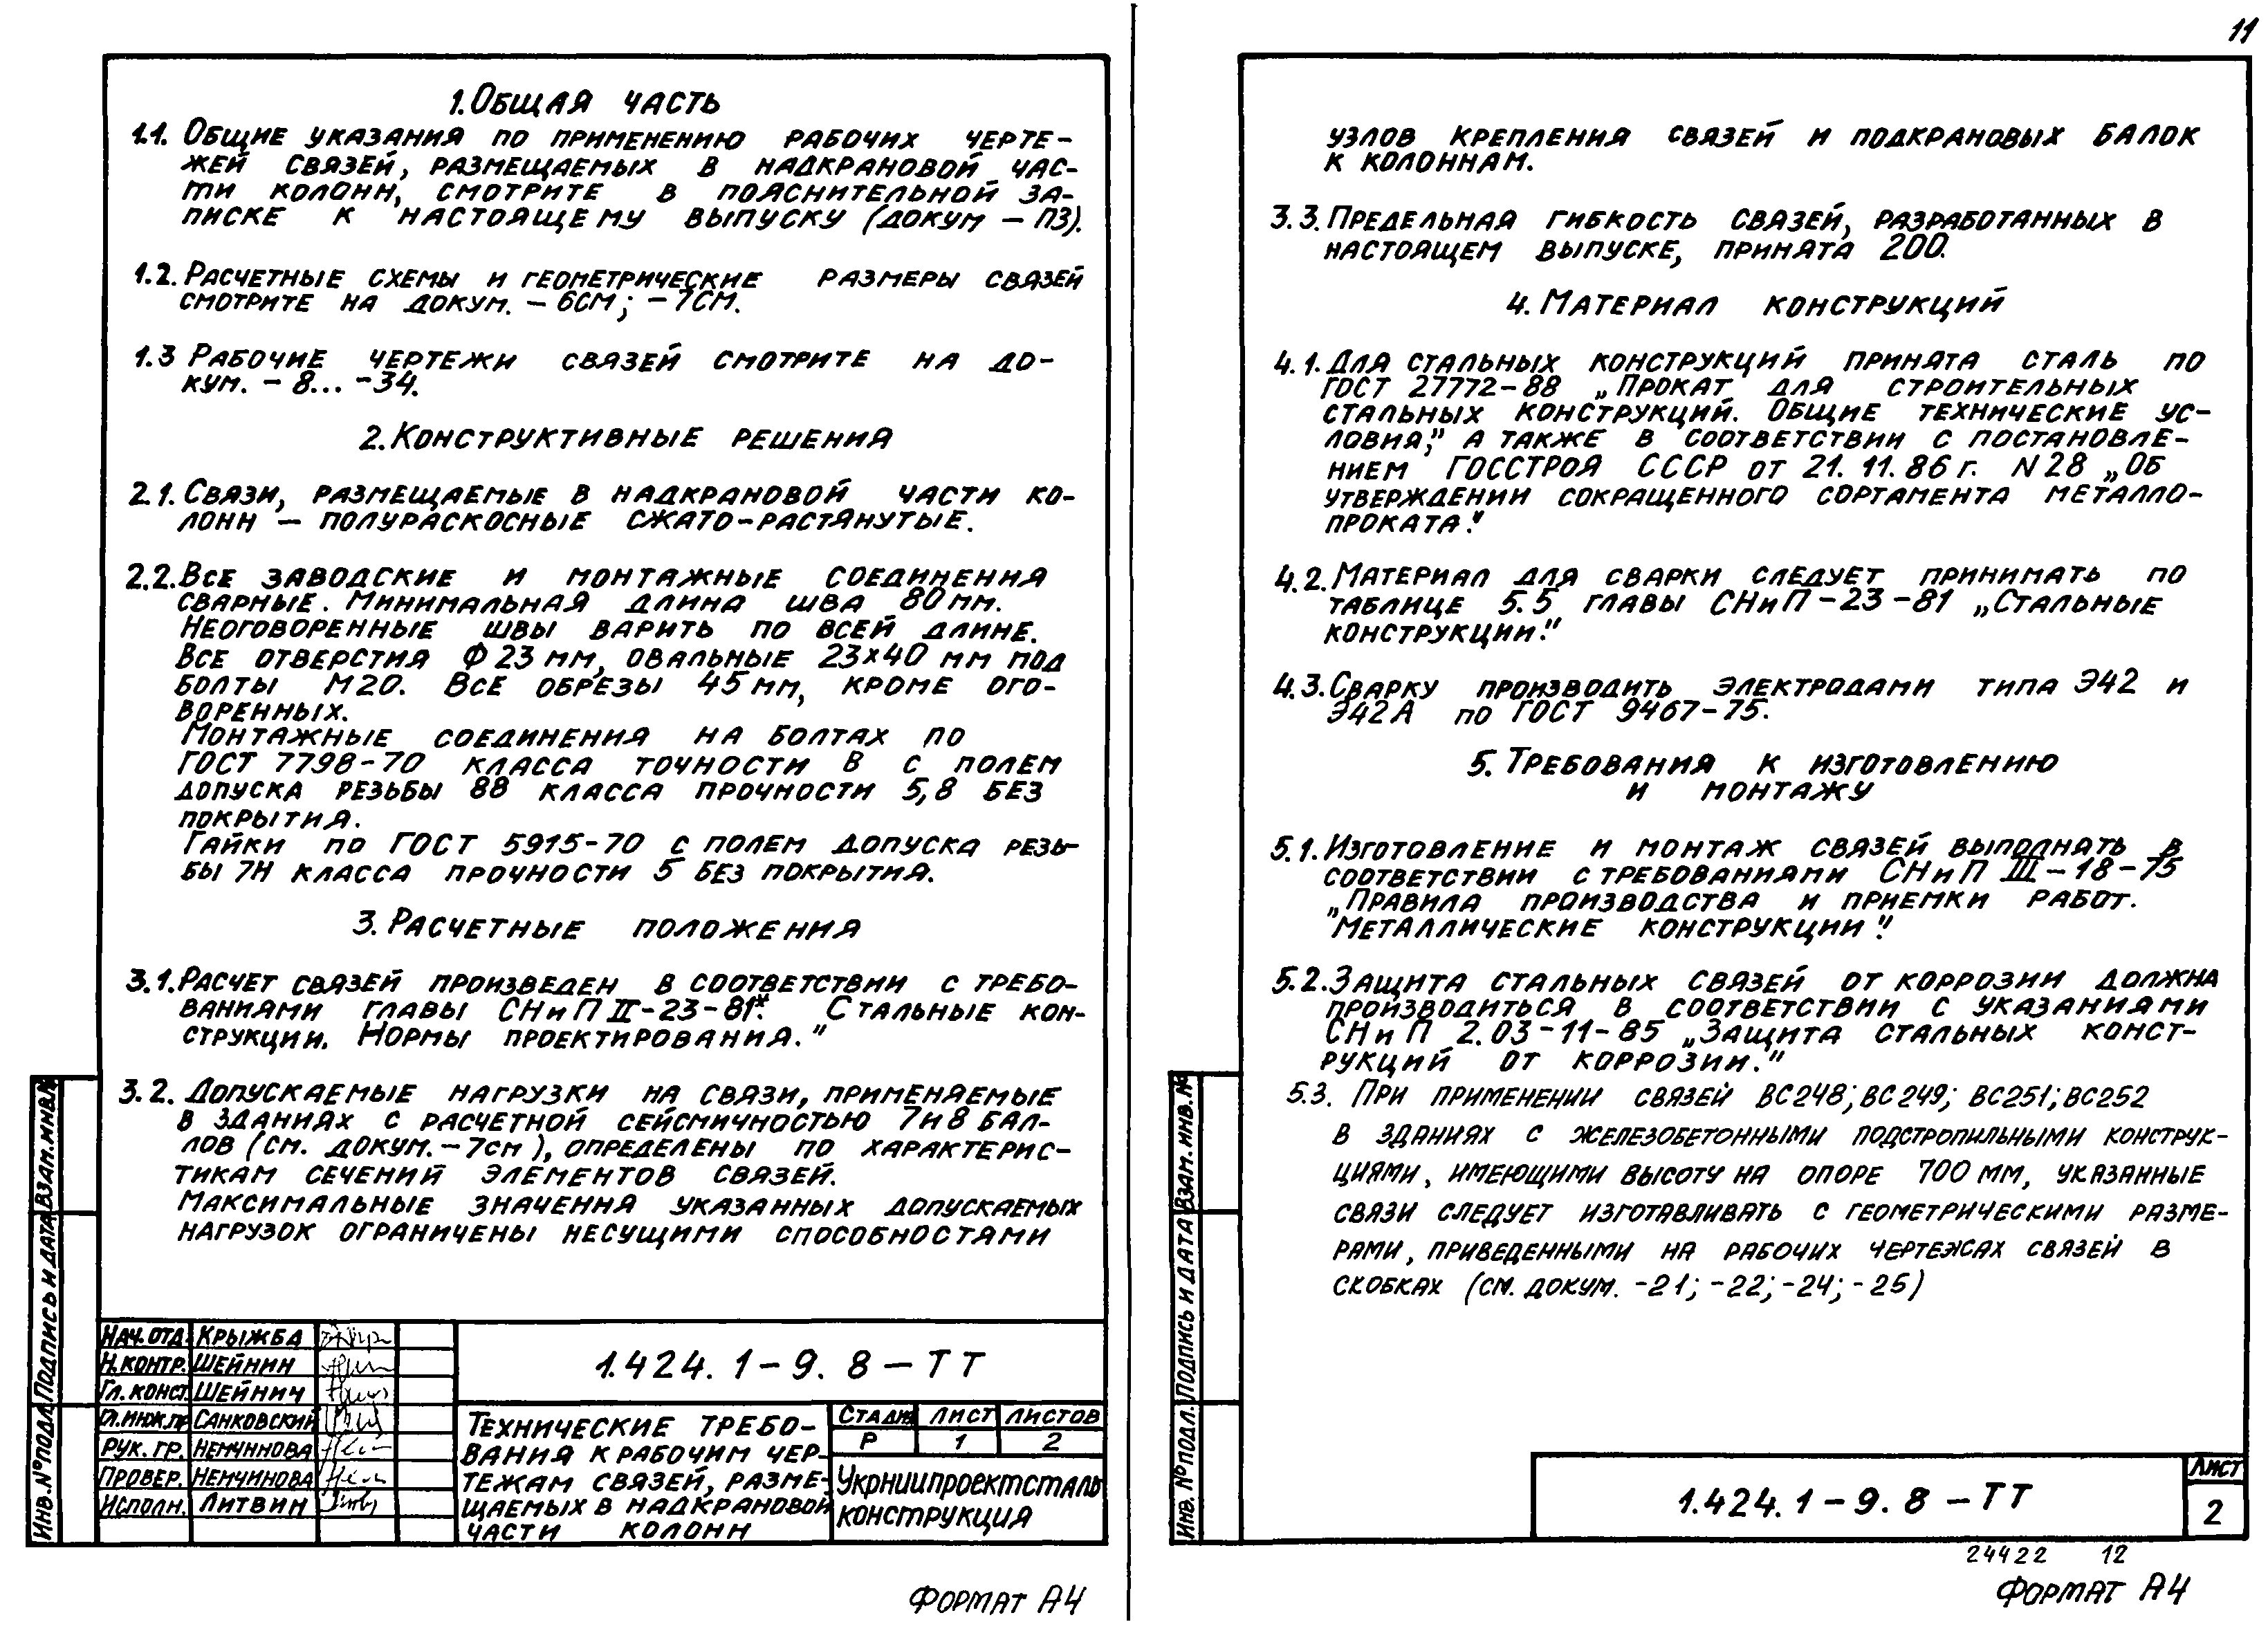 1. Общая часть
1.1. Общие указания по применению рабочих черте-
жей связей, размещаемых в надкрановой час-
ти колонн, смотрите в пояснительной за-
писке к настоящему выпуску (докум – ПЗ).
1.2. Расчетные схемы и геометрические размеры связей
смотрите на докум. – 6СМ; – 7СМ.
1.3 Рабочие чертежи связей смотрите на до-
кум. – 8... –34.
2. Конструктивные решения
2.1. Связи, размещаемые в надкрановой части ко-
лонн – полураскосные сжато-растянутые.
2.2. Все заводские и монтажные соединения
сварные. Минимальная длина шва 80 мм.
Неоговоренные швы варить по всей длине.
Все отверстия Ф 23 мм, овальные 23х40 мм под
болты М20. Все обрезы 45 мм, кроме ого-
воренных.
Монтажные соединения на болтах по
ГОСТ 7798-70 класса точности В с полем
допуска резьбы 88 класса прочности 5,8 без
покрытия.
Гайки по ГОСТ 5915-70 с полем допуска резь-
бы 7Н класса прочности 5 без покрытия.
3. Расчетные положения
3.1. Расчет связей произведен в соответствии с требо-
ваниями главы СНиП II-23-81*. Стальные кон-
струкции. Нормы проектирования."
3.2. Допускаемые нагрузки на связи, применяемые
в зданиях с расчетной сейсмичностью 7и8 бал-
лов (см. докум. – 7см), определены по характерис-
тикам сечений элементов связей.
Максимальные значения указанных допускаемых
нагрузок ограничены несущими способностями
Взам. инв. №
Подпись и дата
Инв. № подл.
Нач. отд. Крыжба
Н. контр. Шейнин
Гл. конст. Шейнич
Гл. инж. пр Санковский
Рук. гр. Немчинова
Провер. Немчинова
Исполн. Литвин
1.424.1-9.8-ТТ
Технические требо-
вания к рабочим чер-
тежам связей, разме-
щаемых в надкрановой
части колонн
Стадия Лист Листов
Р 1 2
Укрниипроектсталь
конструкция
Формат А4
11
узлов крепления связей и подкрановых балок
к колоннам.
3.3. Предельная гибкость связей, разработанных в
настоящем выпуске, принята 200.
4. Материал конструкций
4.1. Для стальных конструкций принята сталь по
ГОСТ 27772-88 „Прокат для строительных
стальных конструкций. Общие технические ус-
ловия", а также в соответствии с постановле-
нием Госстроя СССР от 21.11.86 г. N 28 „Об
утверждении сокращенного сортамента металло-
проката."
4.2. Материал для сварки следует принимать по
таблице 5.5 главы СНиП-23-81 „Стальные
конструкции."
4.3. Сварку производить электродами типа Э42 и
Э42А по ГОСТ 9467-75.
5. Требования к изготовлению
и монтажу
5.1. Изготовление и монтаж связей выполнять в
соответствии с требованиями СНиП III-18-75
„Правила производства и приемки работ.
"Металлические конструкции".
5.2. Защита стальных связей от коррозии должна
производиться в соответствии с указаниями
СНиП 2.03-11-85 „Защита стальных конст-
рукций от коррозии."
5.3. При применении связей ВС248; ВС249; ВС251; ВС252
в зданиях с железобетонными подстропильными конструк-
циями, имеющими высоту на опоре 700 мм, указанные
связи следует изготавливать с геометрическими разме-
рами, приведенными на рабочих чертежах связей в
скобках (см. докум. -21; -22; -24; -25)
Взам. инв. №
Подпись и дата
Инв. № подл.
1.424.1-9.8-ТТ
Лист
2
24422 12
Формат А4